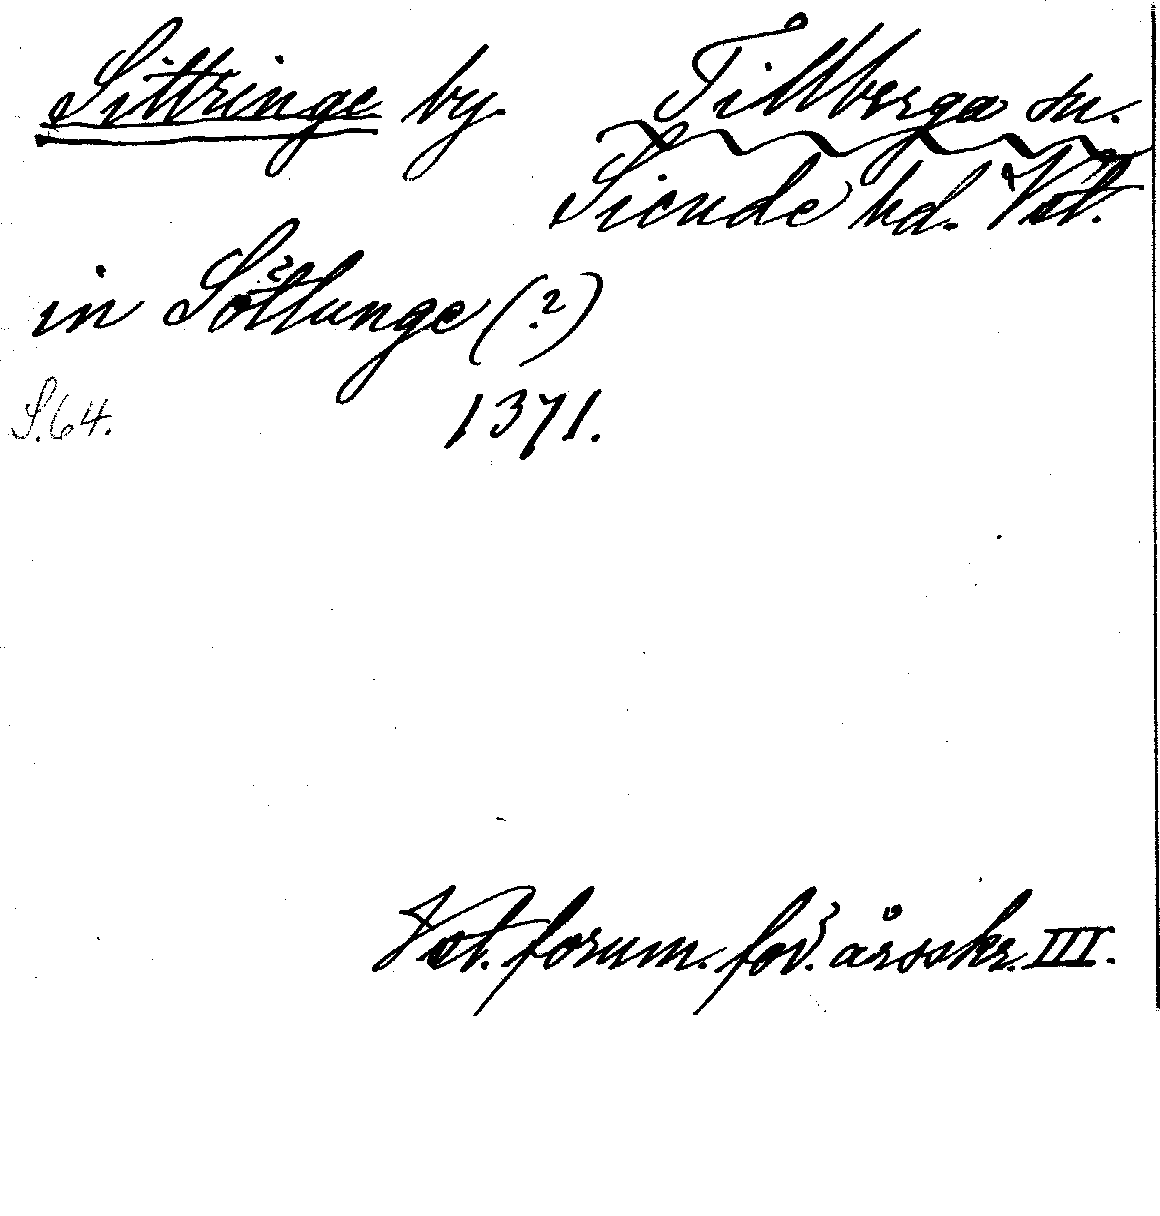 Sittringe by. Tillberga sn.
Siende hd. Vstl.
in Sötlunge (?)
S. 64. 1371.
Vstl. fornm. för:s årsskr. III.